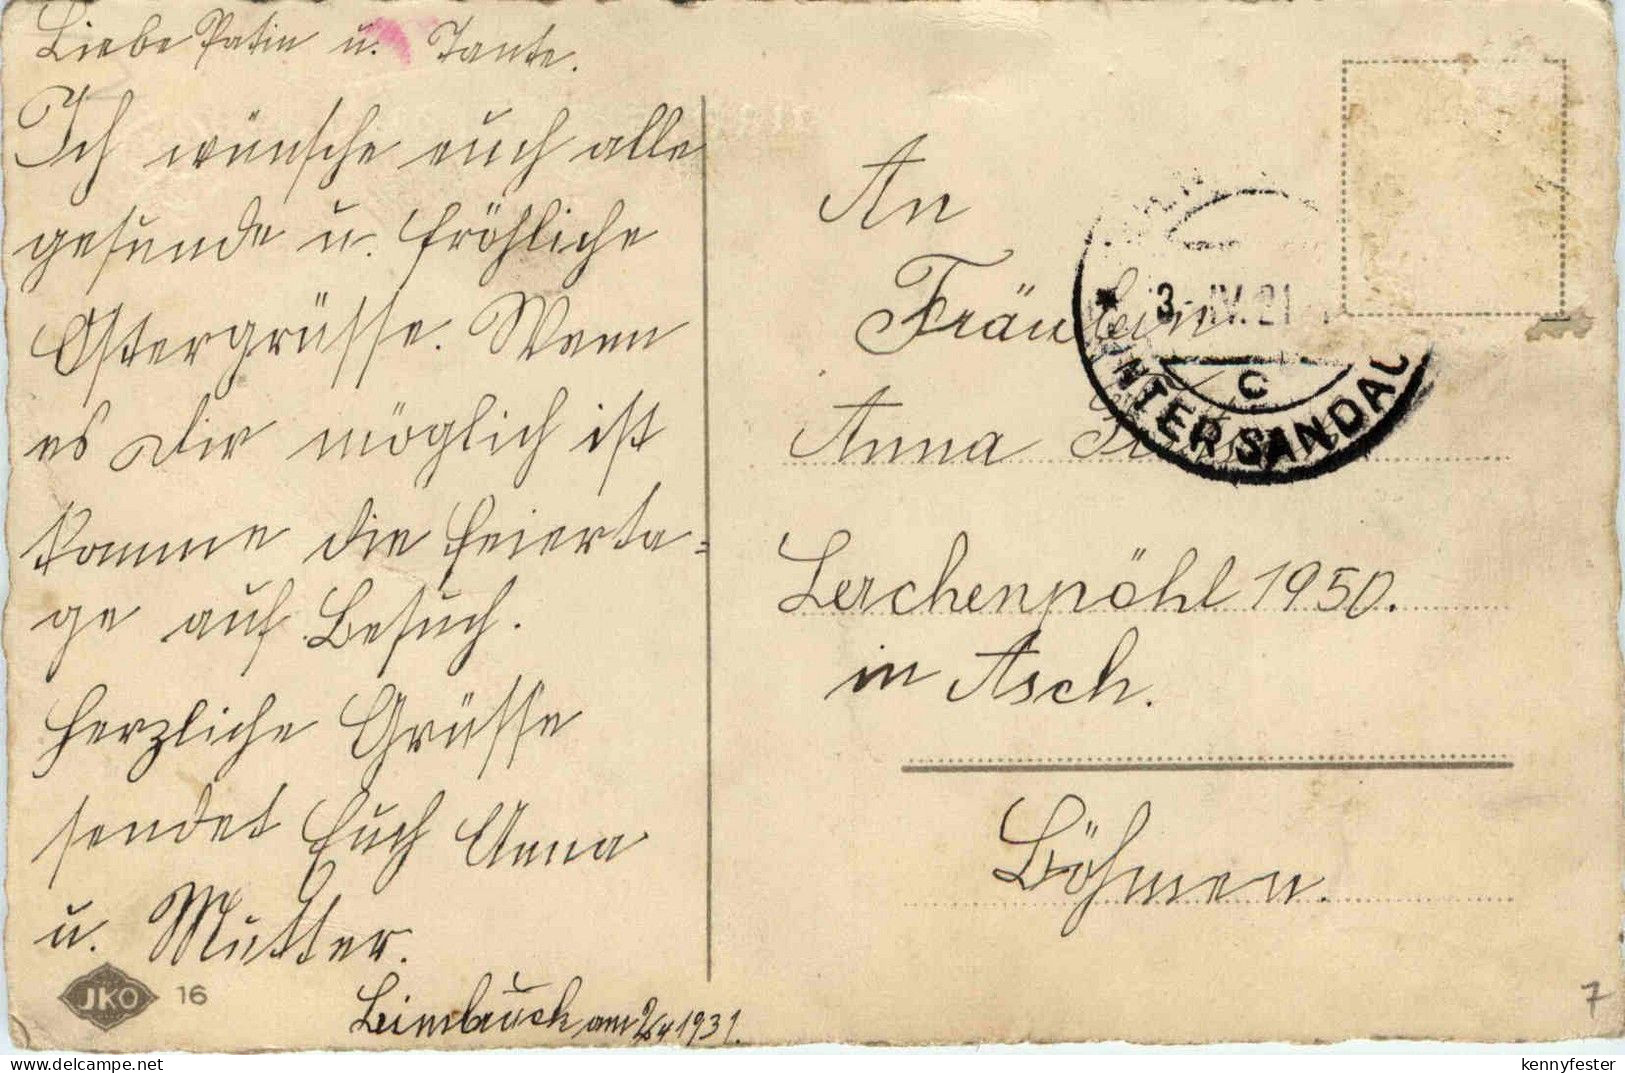 Liebe Patin u. Tante.
Ich wünsche euch alle
gesunde u. fröhliche
Ostergrüsse. Wenn
es Dir möglich ist
komme die Feierta-
ge auf Besuch.
Herzliche Grüsse
sendet Euch Anna
u. Mutter.
Leimbruch am 2/4 1931.
JKO 16
An
Fräulein
Anna
Lerchenpöhl 1950.
in Asch.
Böhmen.
3. IV. 21
C
UNTER SANDAU
7
kennyfester